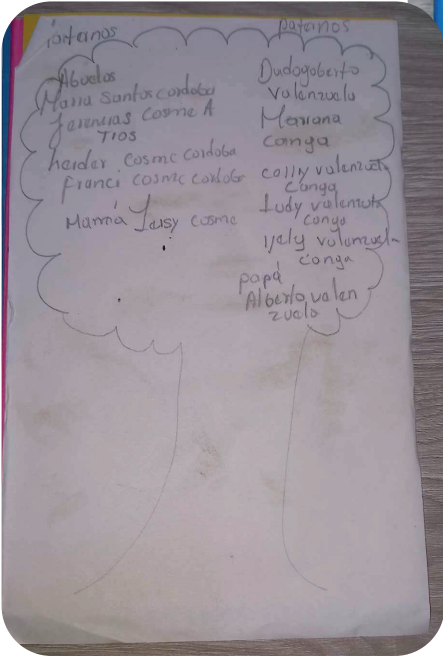 paternos
Abuelos
Maria Santos cordoba
Jeremias Cosme A
TIOS
heider Cosme cordoba
franci cosme cordoba
Mamá Leisy cosme
Dudogoberto
valenzuela
Mariana
conga
colly valenzuela
Conga
Ludy valenzuela
conga
yely valenzuela
conga
papá
Alberto valen
zuela